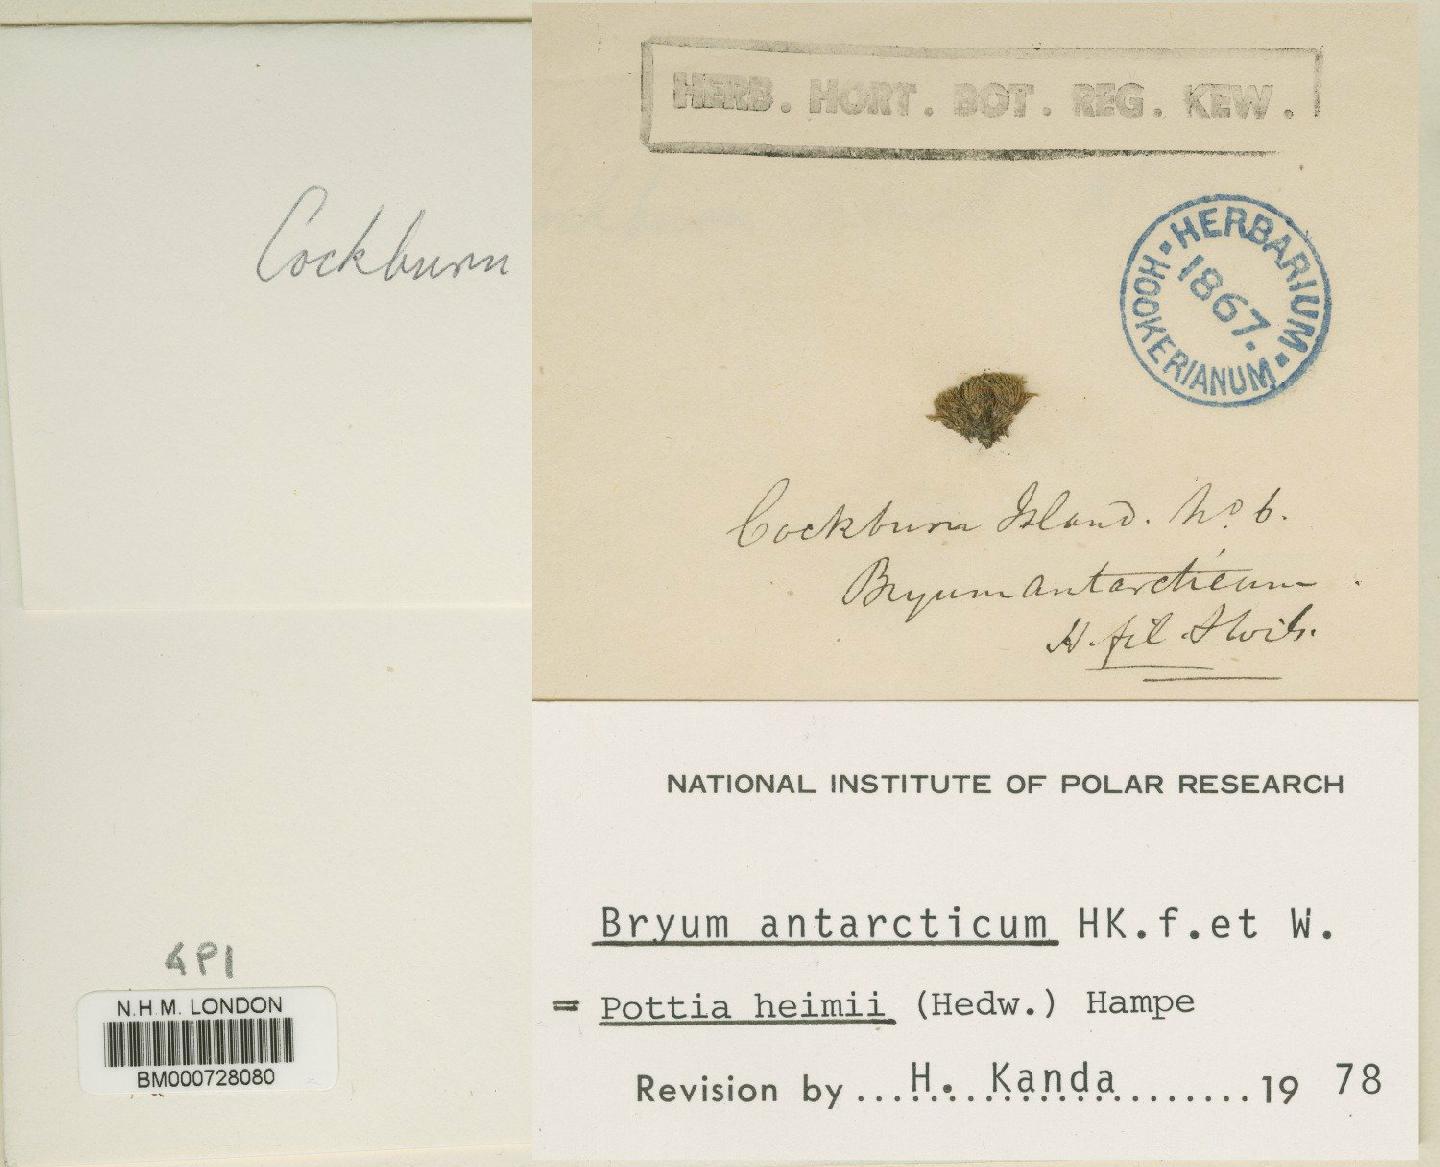 Cockburn
4P1
N.H.M. LONDON
BM000728080
HERB. HORT. BOT. REG. KEW.
HERBARIUM
HOOKERIANUM
1867.
Cockburn Island. No 6.
Bryum antarcticum
H. fil & Wils.
NATIONAL INSTITUTE OF POLAR RESEARCH
Bryum antarcticum HK.f.et W.
= Pottia heimii (Hedw.) Hampe
Revision by ....H. Kanda........... 19 78